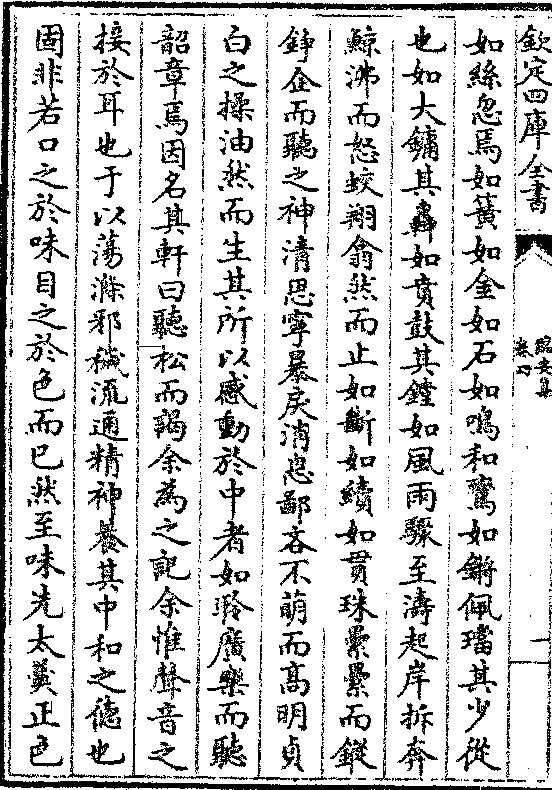 欽定四庫全書
臨安集
卷
一
如絲忽焉如簧如金如石如鳴和鸞如鏘佩璫其少從
也如大鏞其轟如賁鼓其鏜如風雨驟至濤起岸拆奔
鯨沸而怒蛟翔翕然而止如斷如續如貫珠纍纍而鏦
錚企而聽之神清思寧暴戾消息鄙吝不萌而髙明貞
白之操油然而生其所以感動於中者如聆廣樂而聽
韶章焉因名其軒曰聽松而謁余為之記余惟聲音之
接於耳也于以蕩滌邪穢流通精神養其中和之徳也
固非若口之於味目之於色而已然至味先太羹正色